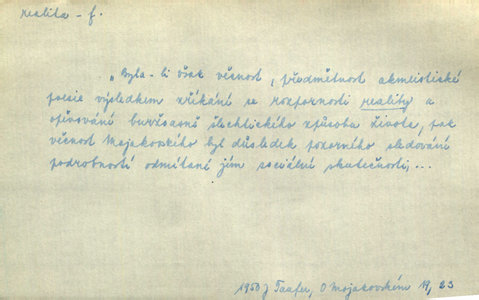 realita - f.
„Byla-li však věcnost, předmětnost akmeistické
poesie výsledkem zříkání se rozpornosti reality a
opěvování buržoasně šlechtického způsobu života, pak
věcnost Majakovského byl důsledek pozorného sledování
podrobností odmítané jím sociální skutečnosti, ...
1950 J Taufer, O Majakovském 19, 23